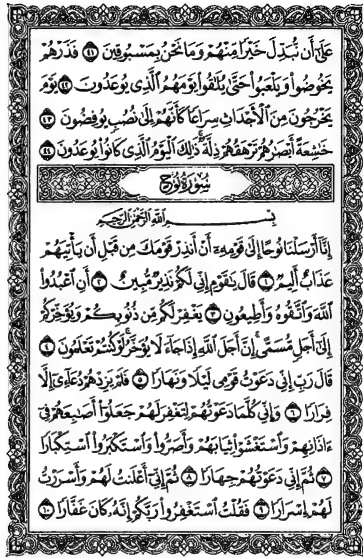 عَلَىٰٓ أَن نُّبَدِّلَ خَيۡرٗا مِّنۡهُمۡ وَمَا نَحۡنُ بِمَسۡبُوقِينَ ٤١ فَذَرۡهُمۡ
يَخُوضُواْ وَيَلۡعَبُواْ حَتَّىٰ يُلَٰقُواْ يَوۡمَهُمُ ٱلَّذِي يُوعَدُونَ ٤٢ يَوۡمَ
يَخۡرُجُونَ مِنَ ٱلۡأَجۡدَاثِ سِرَاعٗا كَأَنَّهُمۡ إِلَىٰ نُصُبٖ يُوفِضُونَ ٤٣
خَٰشِعَةً أَبۡصَٰرُهُمۡ تَرۡهَقُهُمۡ ذِلَّةٞۚ ذَٰلِكَ ٱلۡيَوۡمُ ٱلَّذِي كَانُواْ يُوعَدُونَ ٤٤
سُورَةُ نُوحٍ
بِسۡمِ ٱللَّهِ ٱلرَّحۡمَٰنِ ٱلرَّحِيمِ
إِنَّآ أَرۡسَلۡنَا نُوحًا إِلَىٰ قَوۡمِهِۦٓ أَنۡ أَنذِرۡ قَوۡمَكَ مِن قَبۡلِ أَن يَأۡتِيَهُمۡ
عَذَابٌ أَلِيمٞ ١ قَالَ يَٰقَوۡمِ إِنِّي لَكُمۡ نَذِيرٞ مُّبِينٌ ٢ أَنِ ٱعۡبُدُواْ
ٱللَّهَ وَٱتَّقُوهُ وَأَطِيعُونِ ٣ يَغۡفِرۡ لَكُم مِّن ذُنُوبِكُمۡ وَيُؤَخِّرۡكُمۡ
إِلَىٰٓ أَجَلٖ مُّسَمًّىۚ إِنَّ أَجَلَ ٱللَّهِ إِذَا جَآءَ لَا يُؤَخَّرُۚ لَوۡ كُنتُمۡ تَعۡلَمُونَ ٤
قَالَ رَبِّ إِنِّي دَعَوۡتُ قَوۡمِي لَيۡلٗا وَنَهَارٗا ٥ فَلَمۡ يَزِدۡهُمۡ دُعَآءِيٓ إِلَّا
فِرَارٗا ٦ وَإِنِّي كُلَّمَا دَعَوۡتُهُمۡ لِتَغۡفِرَ لَهُمۡ جَعَلُوٓاْ أَصَٰبِعَهُمۡ فِيٓ
ءَاذَانِهِمۡ وَٱسۡتَغۡشَوۡاْ ثِيَابَهُمۡ وَأَصَرُّواْ وَٱسۡتَكۡبَرُواْ ٱسۡتِكۡبَارٗا
٧ ثُمَّ إِنِّي دَعَوۡتُهُمۡ جِهَارٗا ٨ ثُمَّ إِنِّيٓ أَعۡلَنتُ لَهُمۡ وَأَسۡرَرۡتُ
لَهُمۡ إِسۡرَارٗا ٩ فَقُلۡتُ ٱسۡتَغۡفِرُواْ رَبَّكُمۡ إِنَّهُۥ كَانَ غَفَّارٗا ١٠